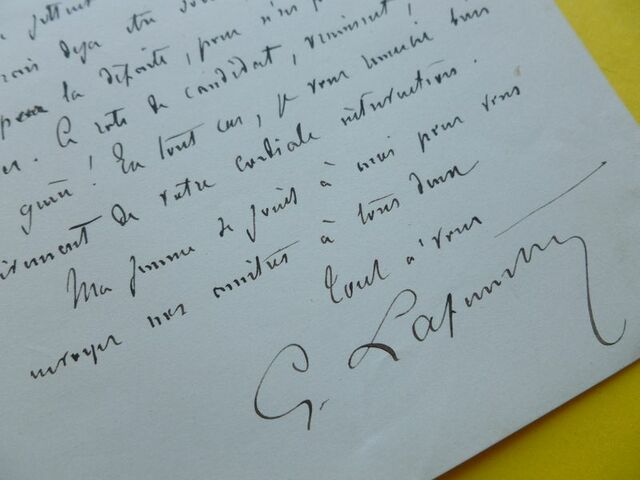 déjà été
pour la députe, pour n'es
. Ce rôle de candidat, vraiment,
guère! En tout cas, je vous remercie bien
de votre cordiale intervention.
Ma femme se joint à moi pour vous
envoyer nos amitiés à tous deux
Tout à vous
G. Lafenestre